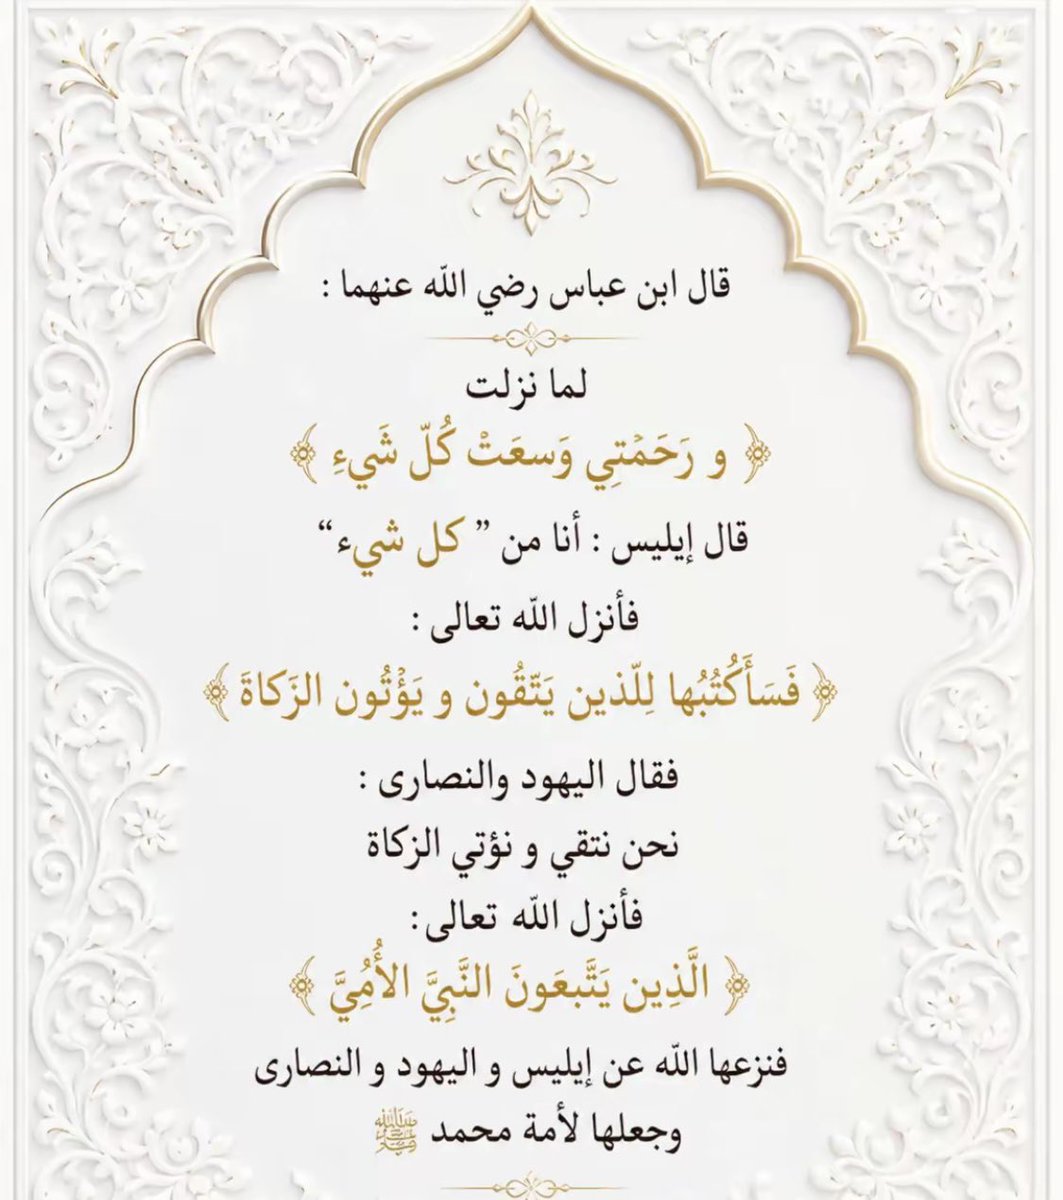 قال ابن عباس رضي الله عنهما :
لما نزلت
﴿ و رَحَمْتِي وَسعَتْ كُلّ شَيءِ ﴾
قال إيليس : أنا من ” كل شيء “
فأنزل الله تعالى :
﴿ فَسَأَكُتُبُها لِلّذين يَتّقُون و يَؤْتُون الزَكاةَ ﴾
فقال اليهود والنصارى :
نحن نتقي و نؤتي الزكاة
فأنزل الله تعالى :
﴿ الَّذِين يَتَّبعَونَ النَّبِيَّ الأُمِيَّ ﴾
فنزعها الله عن إيليس و اليهود و النصارى
وجعلها لأمة محمد ﷺ